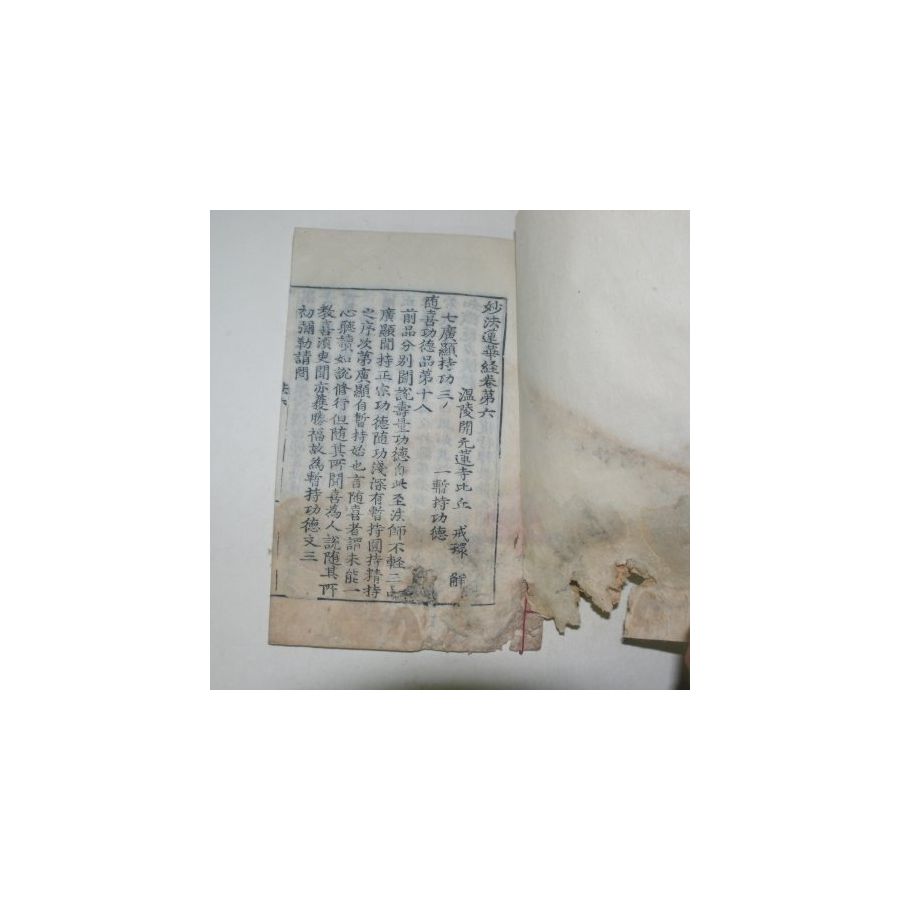 妙法蓮華経卷第六
温陵開元蓮寺比丘 戒環 解
七廣顯持功三 一暫持功德
随喜功德品第十八
前品分別聞說壽量功德自此至法師不軽三品
廣顯聞持正宗功德随功淺深有暫持圓持精持
之序次第廣顯自暫持始也言随喜者謂未能一
心聽讀如說修行但随其所聞喜為人說随其所
教喜湏臾聞亦獲勝福故為暫持功德文三
初彌勒請問